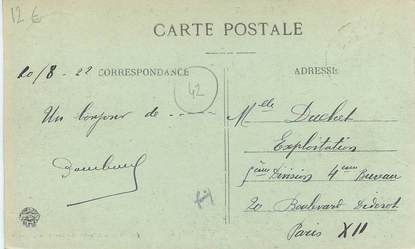 12 €
CARTE POSTALE
20/8 - 22 CORRESPONDANCE
42
Un bonjour de ......
ADRESSE
Mlle Duchet
Exploitation
5ème Division 4ème Bureau
20 Boulevard Diderot
Paris XII